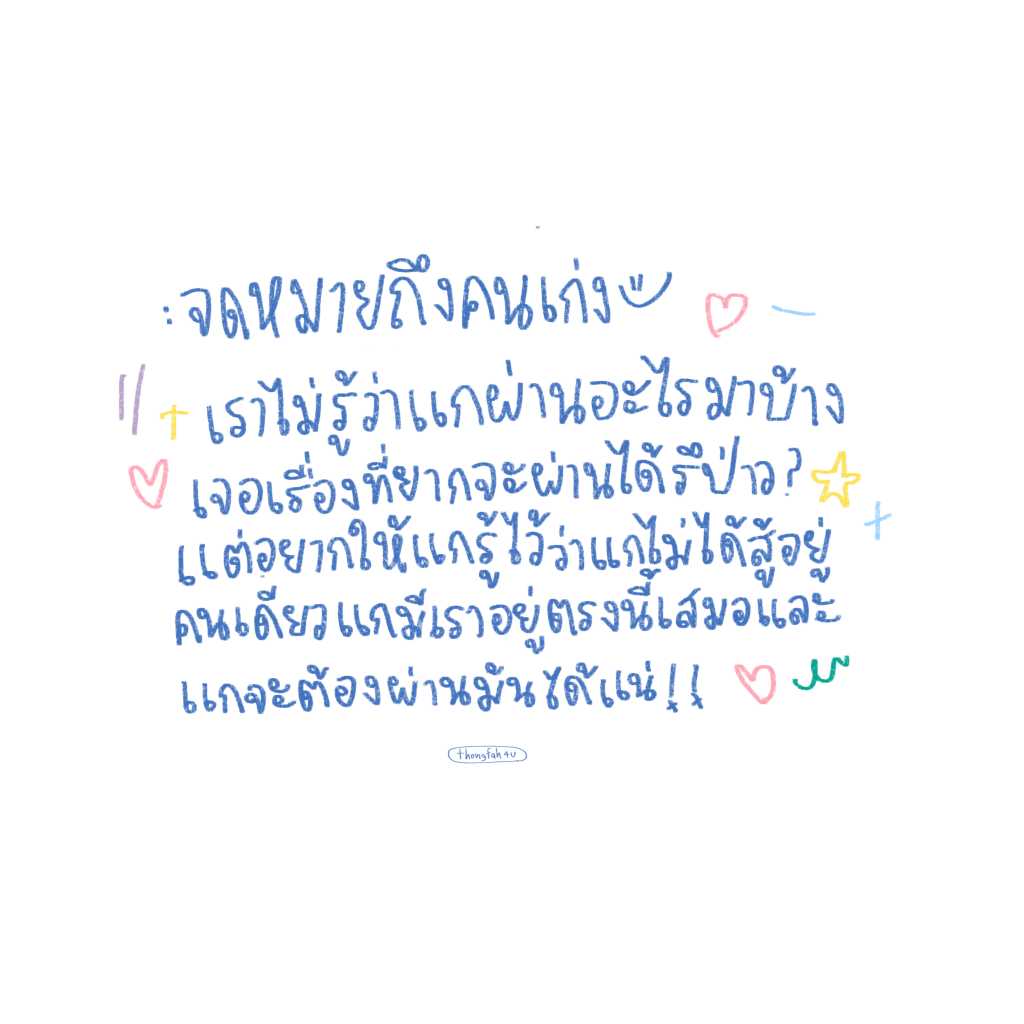 : จดหมายถึงคนเก่ง
เราไม่รู้ว่าแกผ่านอะไรมาบ้าง
เจอเรื่องที่ยากจะผ่านได้รึป่าว?
แต่อยากให้แกรู้ไว้ว่าแกไม่ได้สู้อยู่
คนเดียวแกมีเราอยู่ตรงนี้เสมอและ
แกจะต้องผ่านมันได้แน่!!
thongfah4u